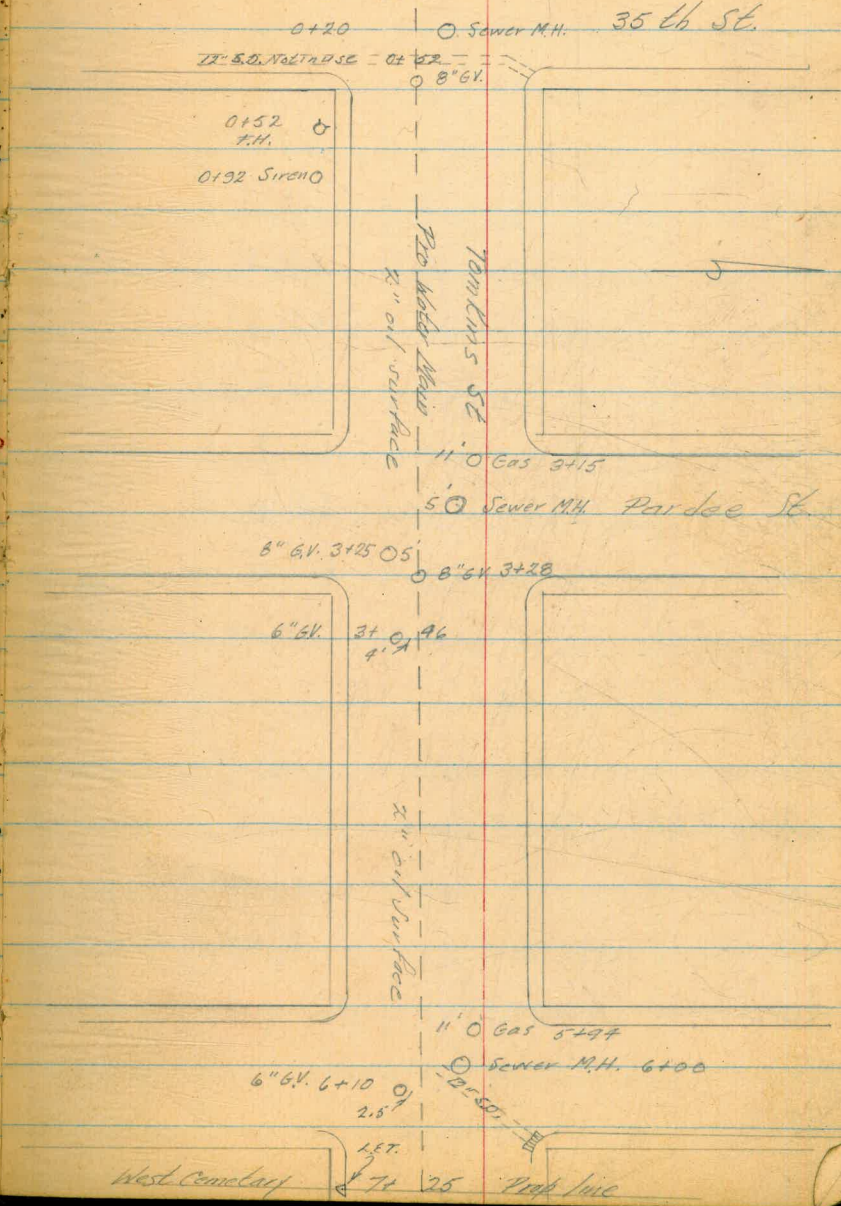 0+20
Sewer M.H.
35th St.
12" S.D. Not in use 0+52
8" G.V.
0+52
F.H.
0+92 Siren
Tomkins St
Pro Water Main
2" oil surface
11' Gas 3+15
5' Sewer M.H. Pardee St.
8" G.V. 3+25 5'
8" G.V. 3+28
6" G.V. 3+96
4'
2" oil surface
11' Gas 5+94
Sewer M.H. 6+00
6" G.V. 6+10
2.5'
12" S.D.
West Cemetary 7+25 Prop line